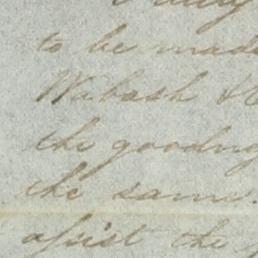 to be made
Wabash &
the goodn
the same.
assist the